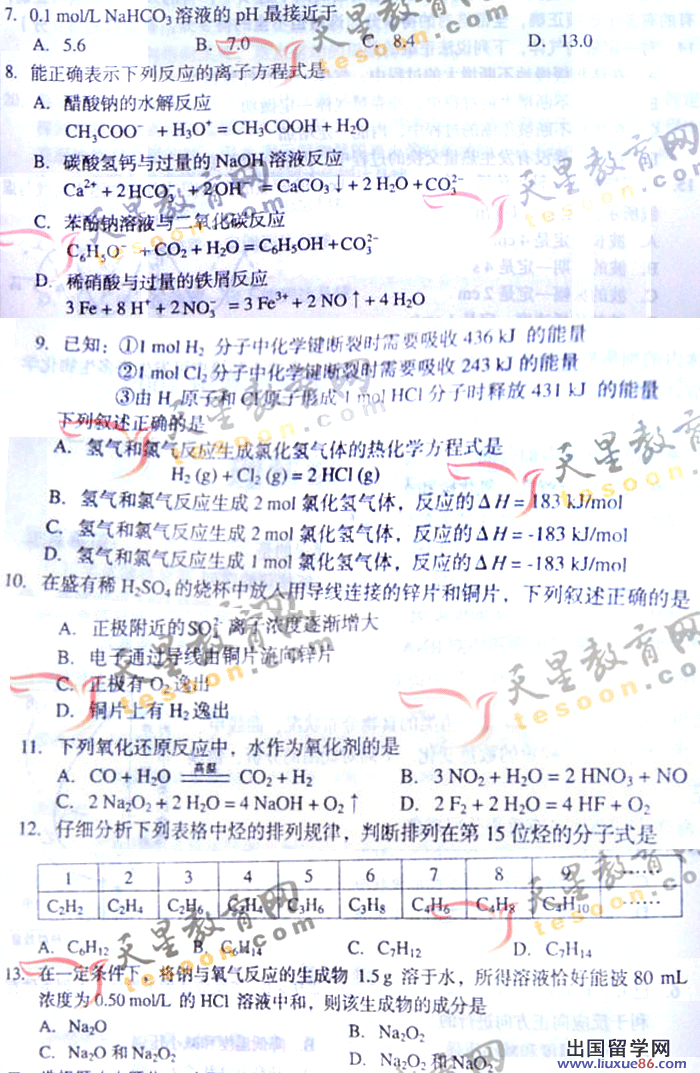 7. 0.1 mol/L NaHCO₃溶液的 pH 最接近于
A. 5.6 B. 7.0 C. 8.4 D. 13.0
8. 能正确表示下列反应的离子方程式是
A. 醋酸钠的水解反应
CH₃COO⁻ + H₃O⁺ = CH₃COOH + H₂O
B. 碳酸氢钙与过量的 NaOH 溶液反应
Ca²⁺ + 2HCO₃⁻ + 2OH⁻ = CaCO₃↓ + 2 H₂O + CO₃²⁻
C. 苯酚钠溶液与二氧化碳反应
C₆H₅O⁻ + CO₂ + H₂O = C₆H₅OH + CO₃²⁻
D. 稀硝酸与过量的铁屑反应
3 Fe + 8 H⁺ + 2 NO₃⁻ = 3 Fe³⁺ + 2 NO↑ + 4 H₂O
9. 已知：①1 mol H₂ 分子中化学键断裂时需要吸收 436 kJ 的能量
②1 mol Cl₂ 分子中化学键断裂时需要吸收 243 kJ 的能量
③由 H 原子和 Cl 原子形成 1 mol HCl 分子时释放 431 kJ 的能量
下列叙述正确的是
A. 氢气和氯气反应生成氯化氢气体的热化学方程式是
H₂ (g) + Cl₂ (g) = 2 HCl (g)
B. 氢气和氯气反应生成 2 mol 氯化氢气体，反应的 Δ H = 183 kJ/mol
C. 氢气和氯气反应生成 2 mol 氯化氢气体，反应的 Δ H = -183 kJ/mol
D. 氢气和氯气反应生成 1 mol 氯化氢气体，反应的 Δ H = -183 kJ/mol
10. 在盛有稀 H₂SO₄ 的烧杯中放入用导线连接的锌片和铜片，下列叙述正确的是
A. 正极附近的 SO₄²⁻ 离子浓度逐渐增大
B. 电子通过导线由铜片流向锌片
C. 正极有 O₂ 逸出
D. 铜片上有 H₂ 逸出
11. 下列氧化还原反应中，水作为氧化剂的是
A. CO + H₂O ═高温═ CO₂ + H₂ B. 3 NO₂ + H₂O = 2 HNO₃ + NO
C. 2 Na₂O₂ + 2 H₂O = 4 NaOH + O₂↑ D. 2 F₂ + 2 H₂O = 4 HF + O₂
12. 仔细分析下列表格中烃的排列规律，判断排列在第 15 位烃的分子式是
1 2 3 4 5 6 7 8 9 ……
C₂H₂ C₂H₄ C₂H₆ C₃H₄ C₃H₆ C₃H₈ C₄H₆ C₄H₈ C₄H₁₀ ……
A. C₆H₁₂ B. C₆H₁₄ C. C₇H₁₂ D. C₇H₁₄
13. 在一定条件下，将钠与氧气反应的生成物 1.5 g 溶于水，所得溶液恰好能被 80 mL
浓度为 0.50 mol/L 的 HCl 溶液中和，则该生成物的成分是
A. Na₂O B. Na₂O₂
C. Na₂O 和 Na₂O₂ D. Na₂O₂ 和 NaO₂
天星教育网
tesoon.com
出国留学网
www.liuxue86.com